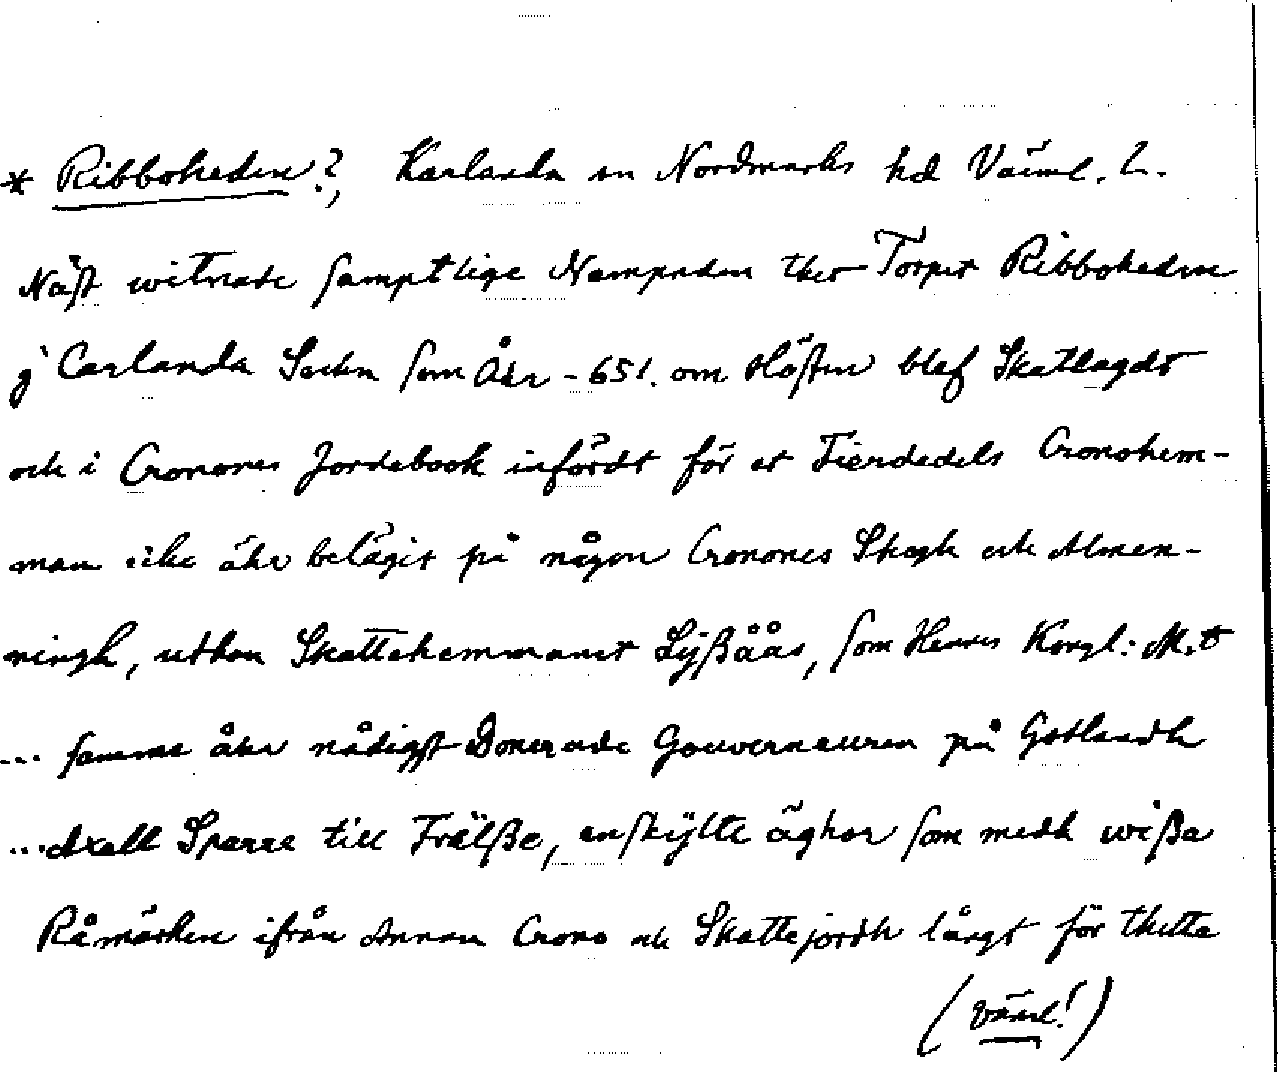 * Ribboheden?, Karlanda sn Nordmarks hd Värml. L.
Näst witnade samptlige Nempnden thet Torpet Ribboheden
j Carlanda Sockn som Åhr -651. om Hösten blef Skatlagdt
och i Cronones Jordebook infördt för et Fierdedels Cronohem-
man icke ähr belägit på någon Cronones Skogh och Almen-
ningh, uthan Skattehemmanet Lÿßåås, som Hennes Kongl: M:t
... samma åhr nådigst Donerade Gouverneuren på Gotlandh
... Axell Sparre till Frälße, enskÿlte äghor som medh wißa
Råmärken ifrån Annan Crono och Skattejordh långt för thetta
(Värml!)